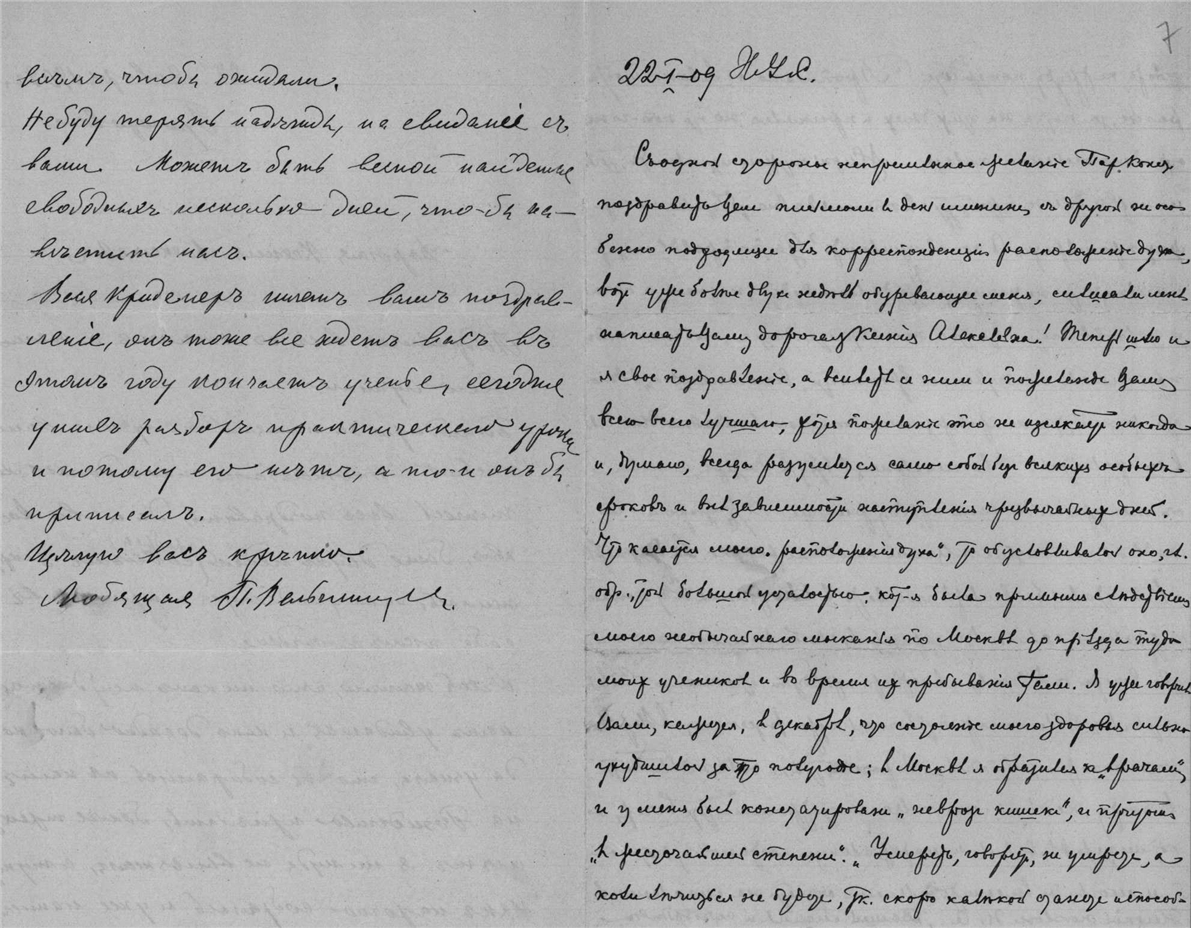 васъ, чтобы ожидали.
Не буду терять надежды на свиданіе съ
вами. Можетъ быть весной найдется
свободныхъ несколько дней, что-бы на-
вѣстить насъ.
Вася шлетъ вамъ поздрав-
леніе, онъ тоже все ждетъ васъ въ
этомъ году кончаетъ ученье, сегодня
у нихъ разборъ практическаго урока
и потому его нѣтъ, а то-и онъ бы
приписалъ.
Цѣлую васъ крѣпко.
Любящая П.
7
22-I-09
Съ одной стороны непремѣнное желаніе Пар. Конст.
поздравить Вами въ день именинъ, съ другой не осо-
бенно подходящее для корреспонденціи расположеніе духа,
вотъ уже болѣе двухъ недѣль обуревающее меня,
написать Вамъ, дорогая Ксенія Алексѣевна! Теперь шлю и
я свое поздравленіе, а вмѣстѣ съ нимъ и пожеланіе Вамъ
всего всего лучшаго, хотя пожеланіе это не изсякаетъ никогда
и, думаю, всегда разумѣется само собой безъ всякихъ особыхъ
сроковъ и внѣ зависимости наступленія чрезвычайныхъ дней.
Что касается моего „расположенія духа“, то обусловливалось оно, гл.
обр., той большой усталостью, кот-я была прямымъ слѣдствіемъ
моего необычайнаго мыканія по Москвѣ до пріѣзда туда
моихъ учениковъ и во время ихъ пребыванія тамъ. Я уже говорилъ
Вамъ, кажется, въ декабрѣ, что состояніе моего здоровья сильно
ухудшилось за то полугодіе; въ Москвѣ я обратился къ „врачамъ“,
и у меня былъ констатированъ „неврозъ кишекъ“, и притомъ
„въ жесточайшей степени“. „Умереть, говорятъ, не умрете, а
коли лѣчиться не будете, тк. скоро калѣкой станете и неспособ-